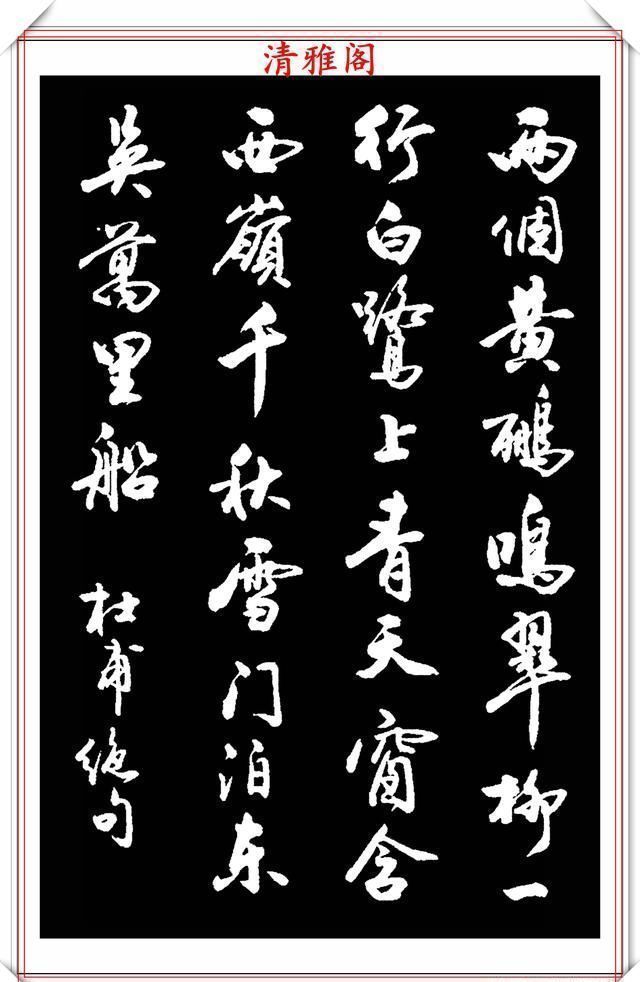 清雅阁
兩個黄鸝鳴翠柳一
行白鷺上青天窗含
西嶺千秋雪门泊东
吴萬里船
杜甫絶句